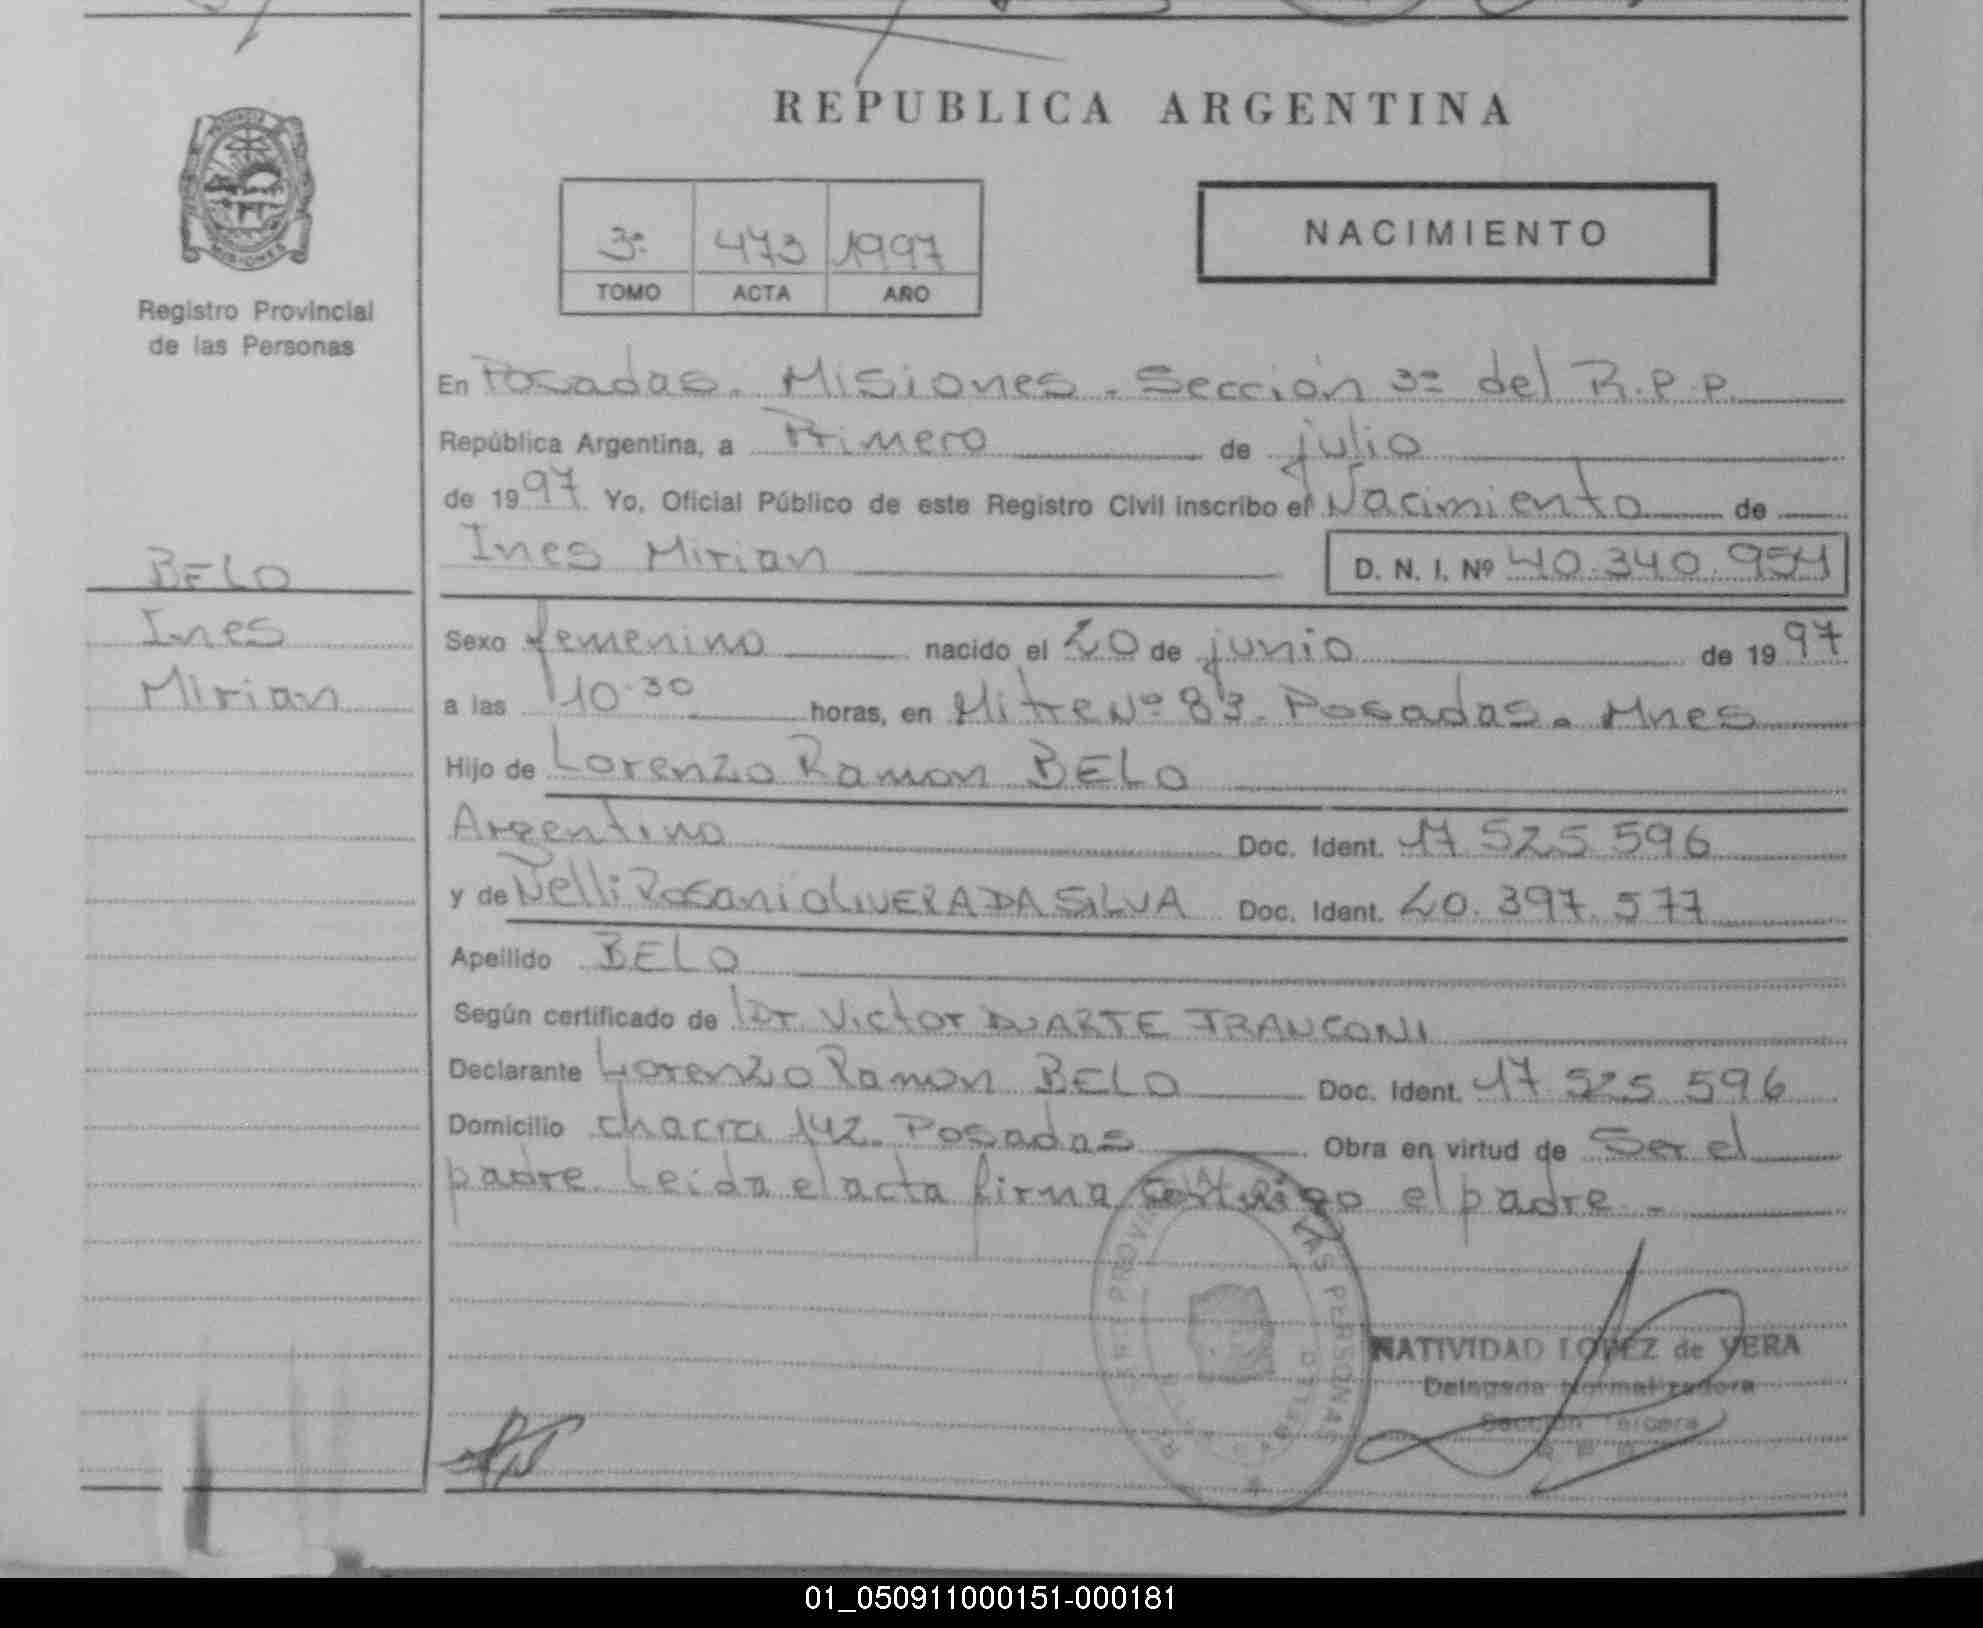 REPUBLICA ARGENTINA
3ª 473 1997
TOMO ACTA AÑO
NACIMIENTO
Registro Provincial
de las Personas
En Posadas. Misiones. Sección 3ª del R.P.P.
República Argentina, a Primero de julio
de 1997 Yo, Oficial Público de este Registro Civil inscribo el Nacimiento de
Ines Mirian D. N. I. Nº 40.340.954
BELO
Ines
Mirian
Sexo femenino nacido el 20 de junio de 1997
a las 10.30 horas, en Mitre Nº 83. Posadas. Mnes
Hijo de Lorenzo Ramon BELO
Argentino Doc. Ident. 17 525 596
y de Nelli Rosani OLIVERA DA SILVA Doc. Ident. 20.397.577
Apellido BELO
Según certificado de Dr. Victor DUARTE TRANCONI
Declarante Lorenzo Ramon BELO Doc. Ident. 17 525 596
Domicilio chacra 142. Posadas Obra en virtud de Ser el
padre. Leída el acta firma conmigo el padre.-
PERSONAS
NATIVIDAD LOPEZ de VERA
Delegada Normalizadora
Sección Tercera
01_050911000151-000181